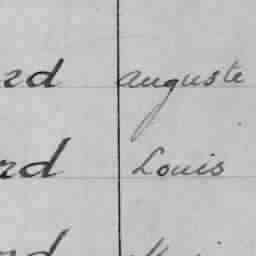 rd Auguste
rd Louis
rd